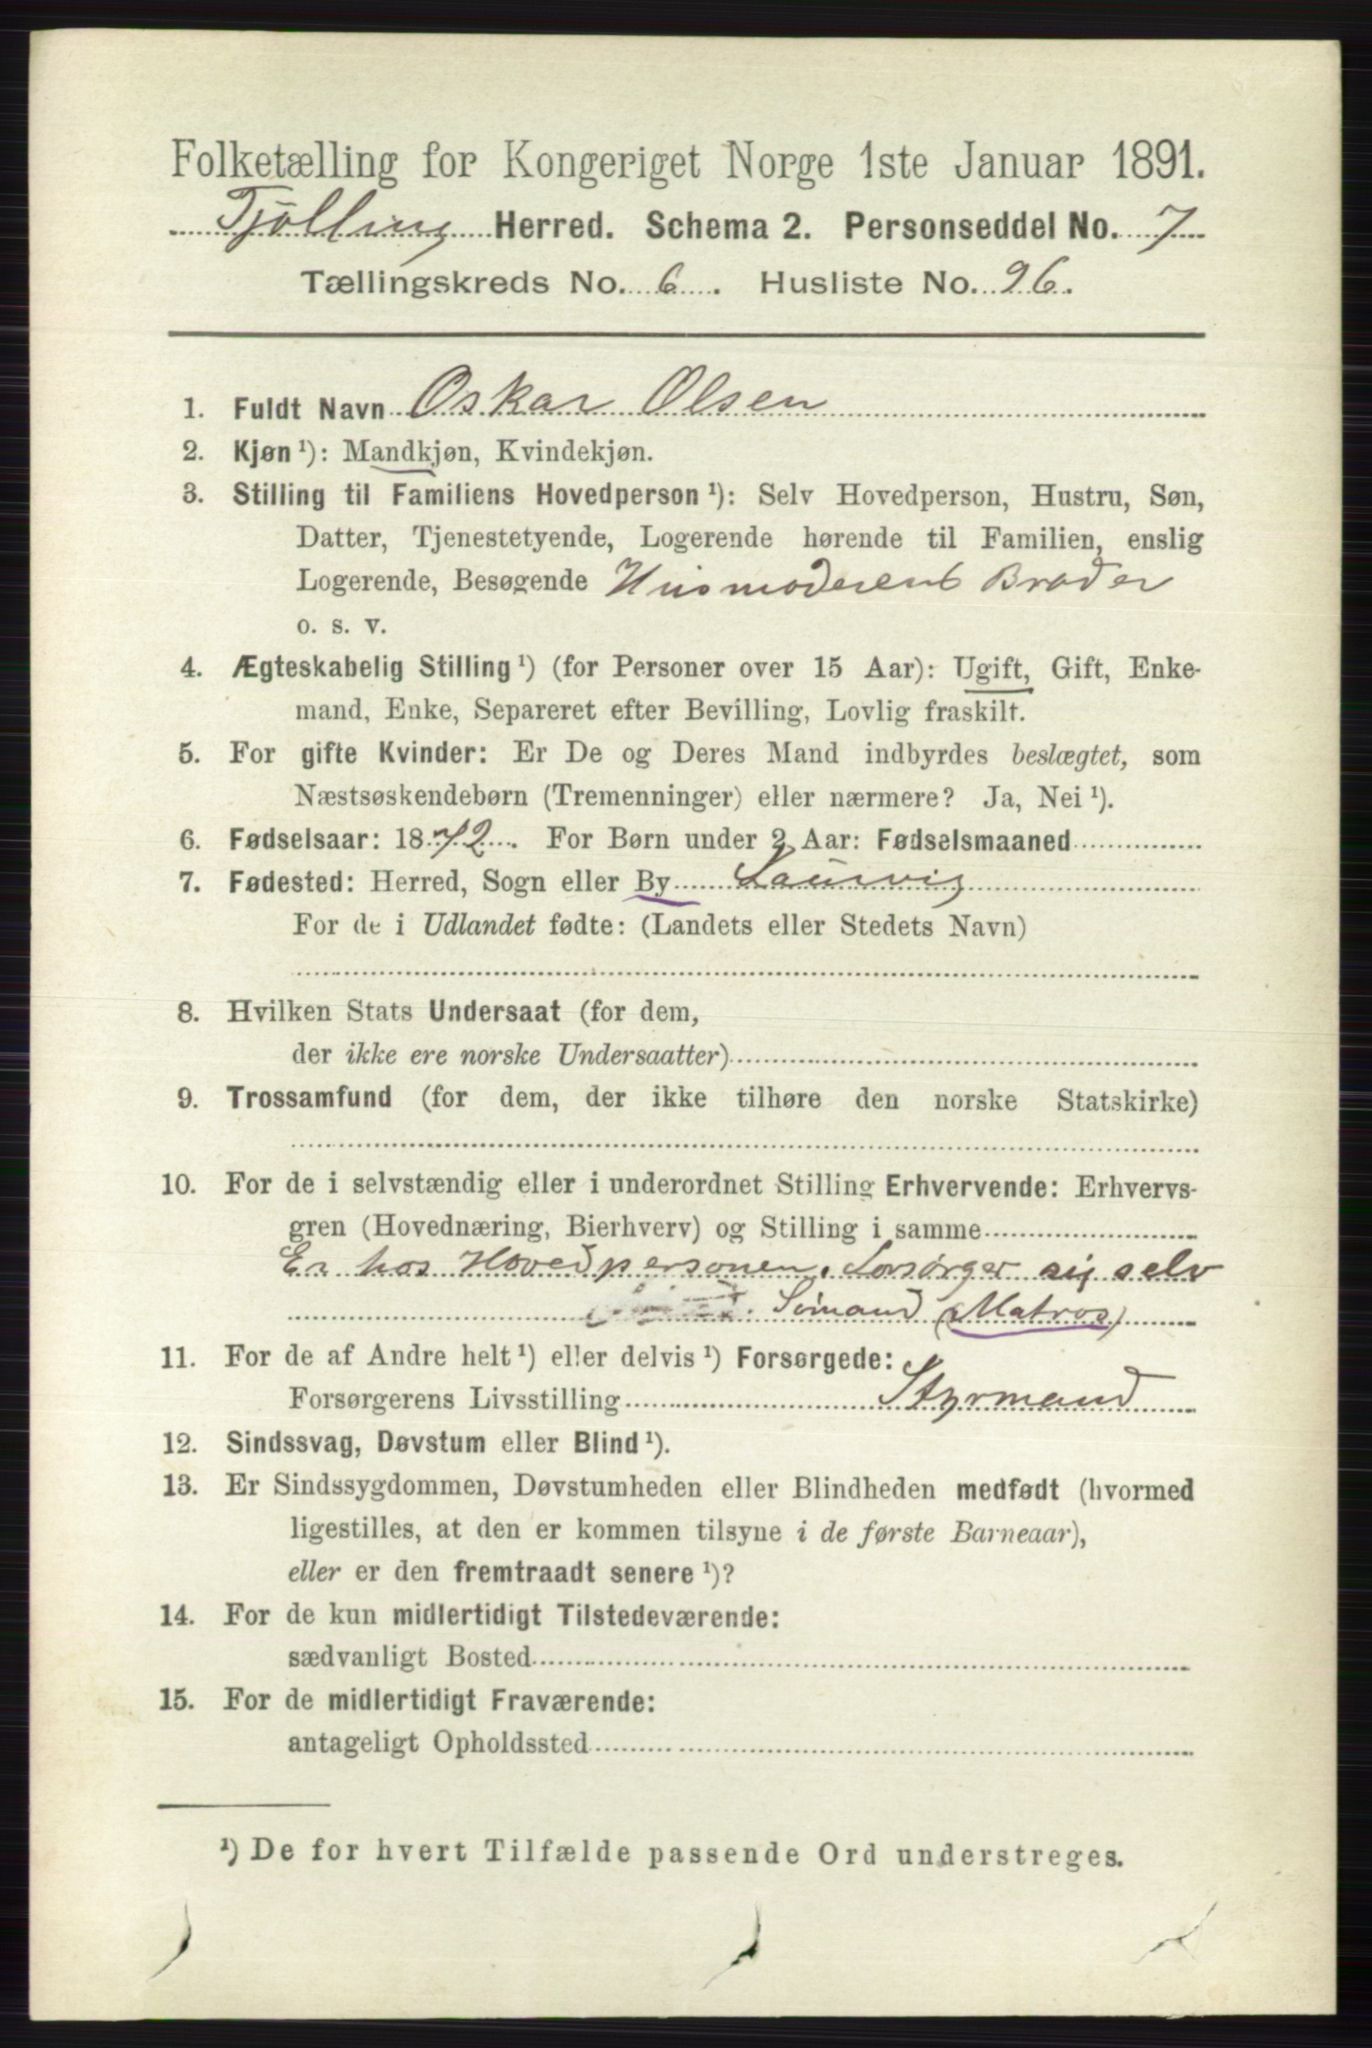 Folketælling for Kongeriget Norge 1ste Januar 1891.
Tjölling Herred. Schema 2. Personseddel No. 7
Tællingskreds No. 6. Husliste No. 26.
1. Fuldt Navn Oskar Olsen
2. Kjøn ¹): Mandkjøn, Kvindekjøn.
3. Stilling til Familiens Hovedperson ¹): Selv Hovedperson, Hustru, Søn,
Datter, Tjenestetyende, Logerende hørende til Familien, enslig
Logerende, Besøgende Husmoderens Broder
o. s. v.
4. Ægteskabelig Stilling ¹) (for Personer over 15 Aar): Ugift, Gift, Enke-
mand, Enke, Separeret efter Bevilling, Lovlig fraskilt.
5. For gifte Kvinder: Er De og Deres Mand indbyrdes beslægtet, som
Næstsøskendebørn (Tremenninger) eller nærmere? Ja, Nei ¹).
6. Fødselsaar: 1872. For Børn under 2 Aar: Fødselsmaaned
7. Fødested: Herred, Sogn eller By Laurvig
For de i Udlandet fødte: (Landets eller Stedets Navn)
8. Hvilken Stats Undersaat (for dem,
der ikke ere norske Undersaatter)
9. Trossamfund (for dem, der ikke tilhøre den norske Statskirke)
10. For de i selvstændig eller i underordnet Stilling Erhvervende: Erhvervs-
gren (Hovednæring, Bierhverv) og Stilling i samme
Er hos Hovedpersonen. Forsørger sig selv
Sömand (Matros)
11. For de af Andre helt ¹) eller delvis ¹) Forsørgede:
Forsørgerens Livsstilling Styrmand
12. Sindssvag, Døvstum eller Blind ¹).
13. Er Sindssygdommen, Døvstumheden eller Blindheden medfødt (hvormed
ligestilles, at den er kommen tilsyne i de første Barneaar),
eller er den fremtraadt senere ¹)?
14. For de kun midlertidigt Tilstedeværende:
sædvanligt Bosted
15. For de midlertidigt Fraværende:
antageligt Opholdssted
¹) De for hvert Tilfælde passende Ord understreges.